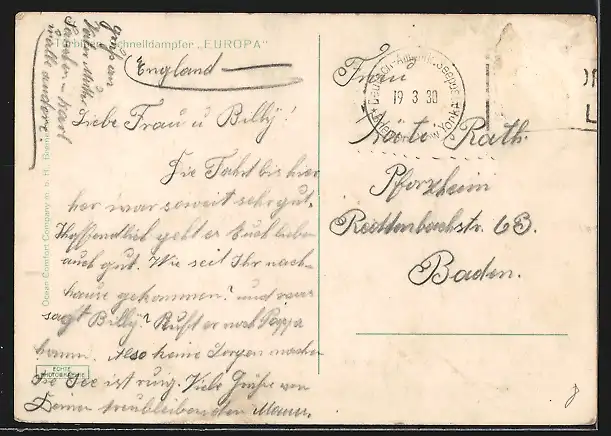 Turbinen-Schnelldampfer „EUROPA"
England
Liebe Frau u Billy!
Die Fahrt bis hier
her war soweit sehr gut.
Hoffendlich geht es Euch lieben
auch gut. Wie seit Ihr nach-
hause gekommen? und was
sagt Billy? Ruft er nach Pappa
Also keine Sorgen machen
die See ist ruig. Viele Grüße von
Deinem treubleibenden Mann.
Gruß an
Mutter
Karl
Ocean Comfort Company m. b. H., Bremen
ECHTE
PHOTOGRAPHIE
Deutsch-Amerik. Seepost
19 3 30
Bremen New York
Frau
Käte Rath.
Pforzheim
Redtenbachstr. 63.
Baden.